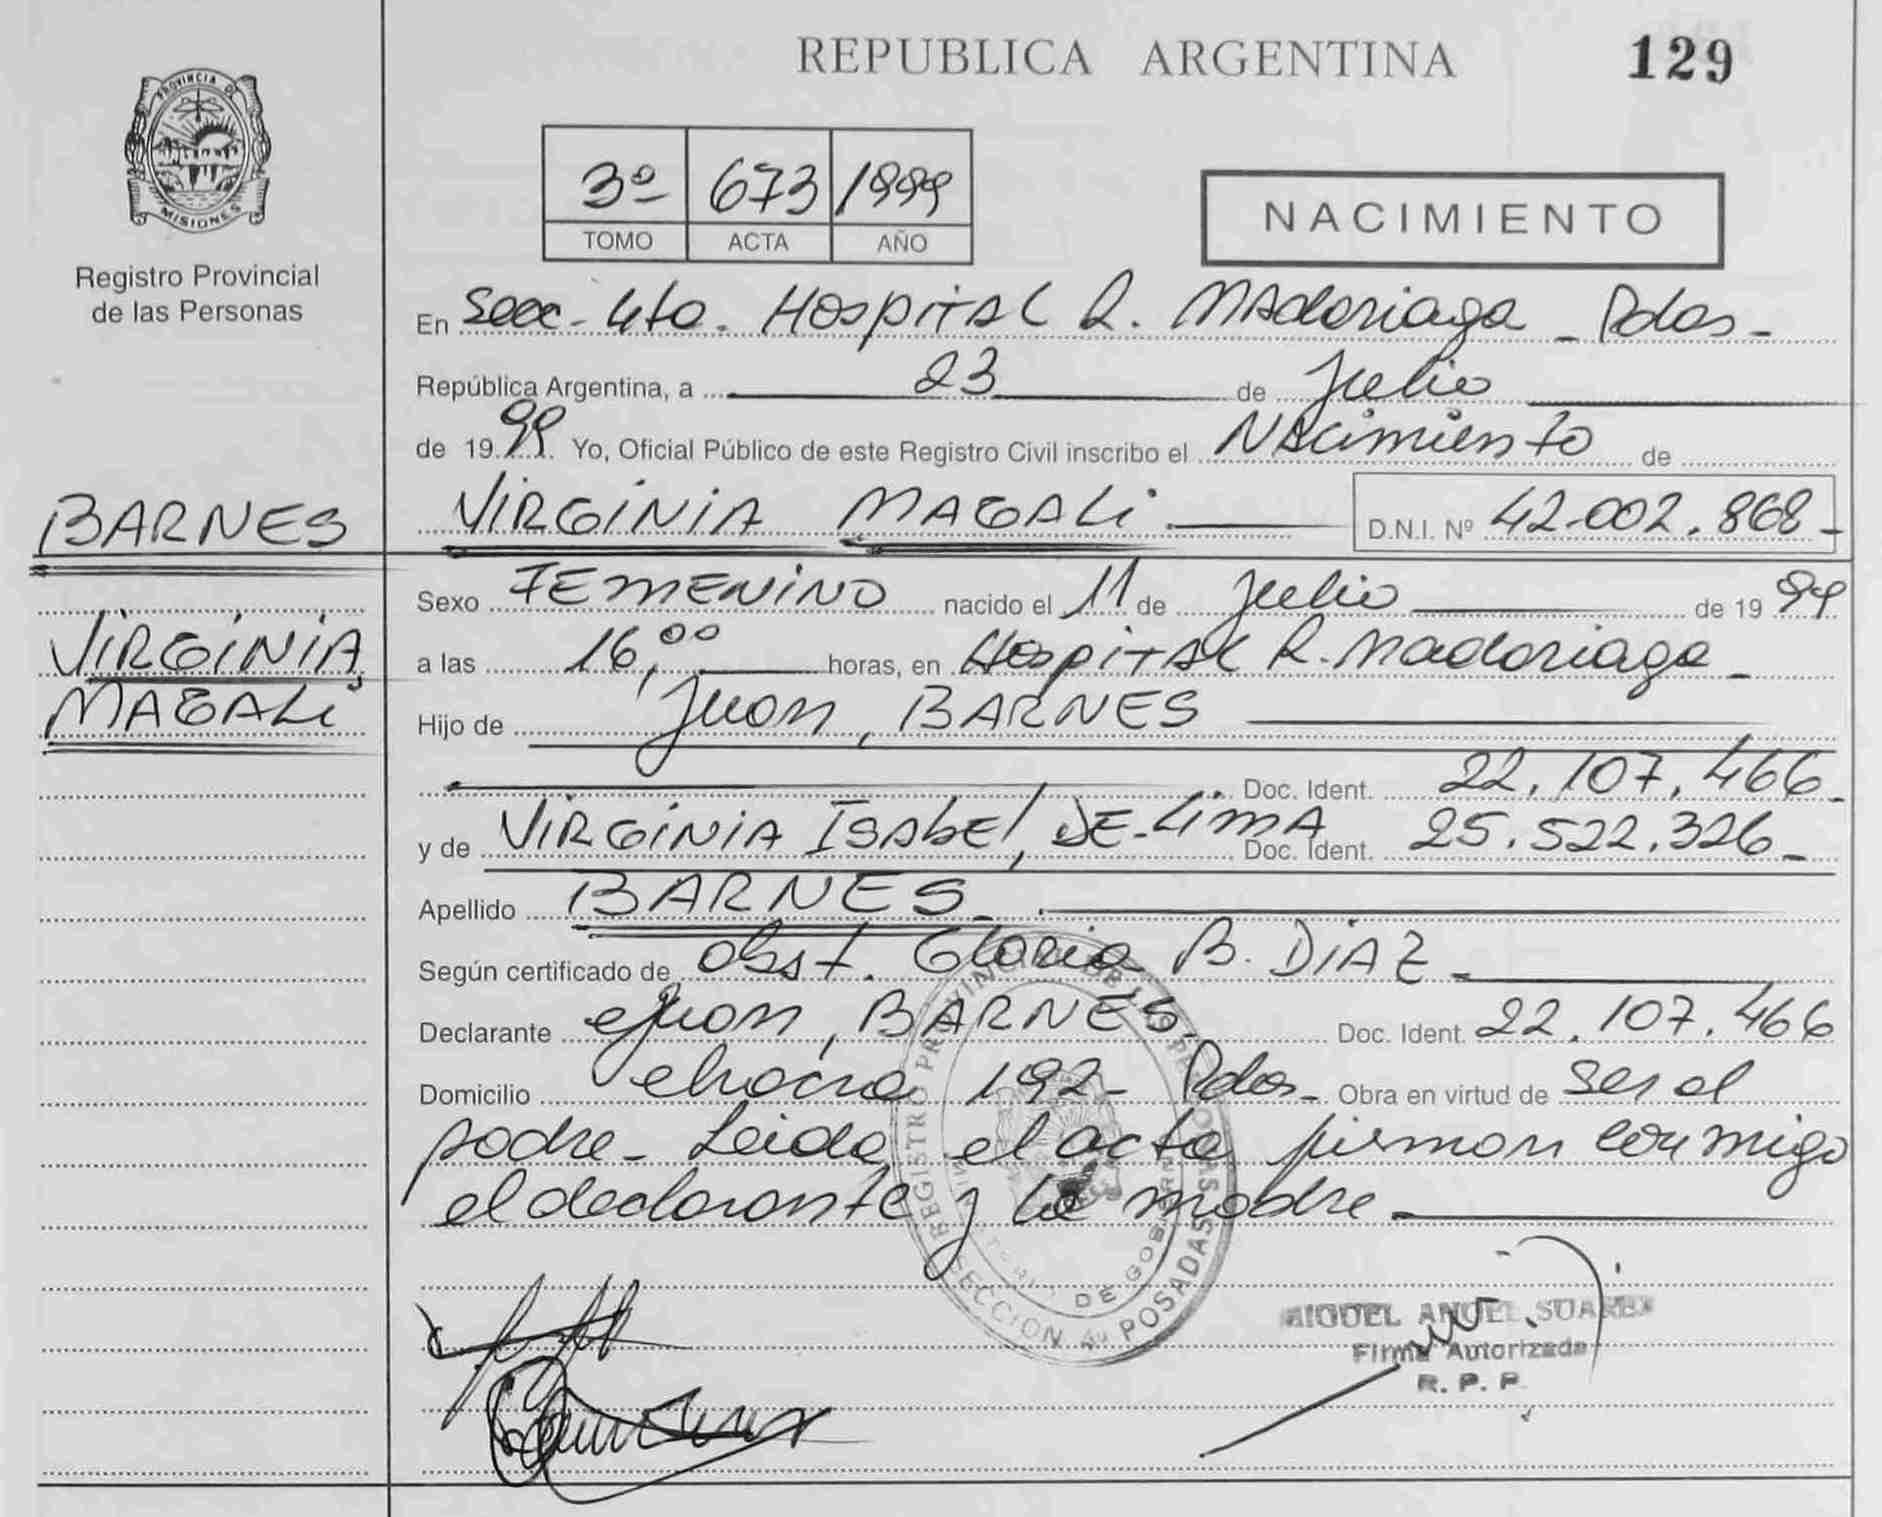 REPUBLICA ARGENTINA
129
PROVINCIA DE
MISIONES
Registro Provincial
de las Personas
3º 673 1999
TOMO ACTA AÑO
NACIMIENTO
En Secc. 4ta. Hospital R. Madariaga - Pdas -
República Argentina, a 23 de Julio
de 1999. Yo, Oficial Público de este Registro Civil inscribo el Nacimiento de
BARNES
VIRGINIA MAGALI.
D.N.I. Nº 42.002.868-
VIRGINIA
MAGALI
Sexo FEMENINO nacido el 11 de Julio de 1999
a las 16,00 horas, en Hospital R. Madariaga -
Hijo de Juan, BARNES
Doc. Ident. 22.107.466-
y de VIRGINIA ISABEL, DE-LIMA Doc. Ident. 25.522.326-
Apellido BARNES -
Según certificado de Obst. Gloria B. DIAZ -
Declarante Juan, BARNES, Doc. Ident. 22.107.466
Domicilio 192- Pdas- Obra en virtud de ser el
padre - Leida el acta firman conmigo
el declarante y la madre -
REGISTRO PROVINCIAL DE LAS PERSONAS
DE GOBIERNO
SECCION 4ta POSADAS
MIGUEL ANGEL SUAREZ
Firma Autorizada
R. P. P.